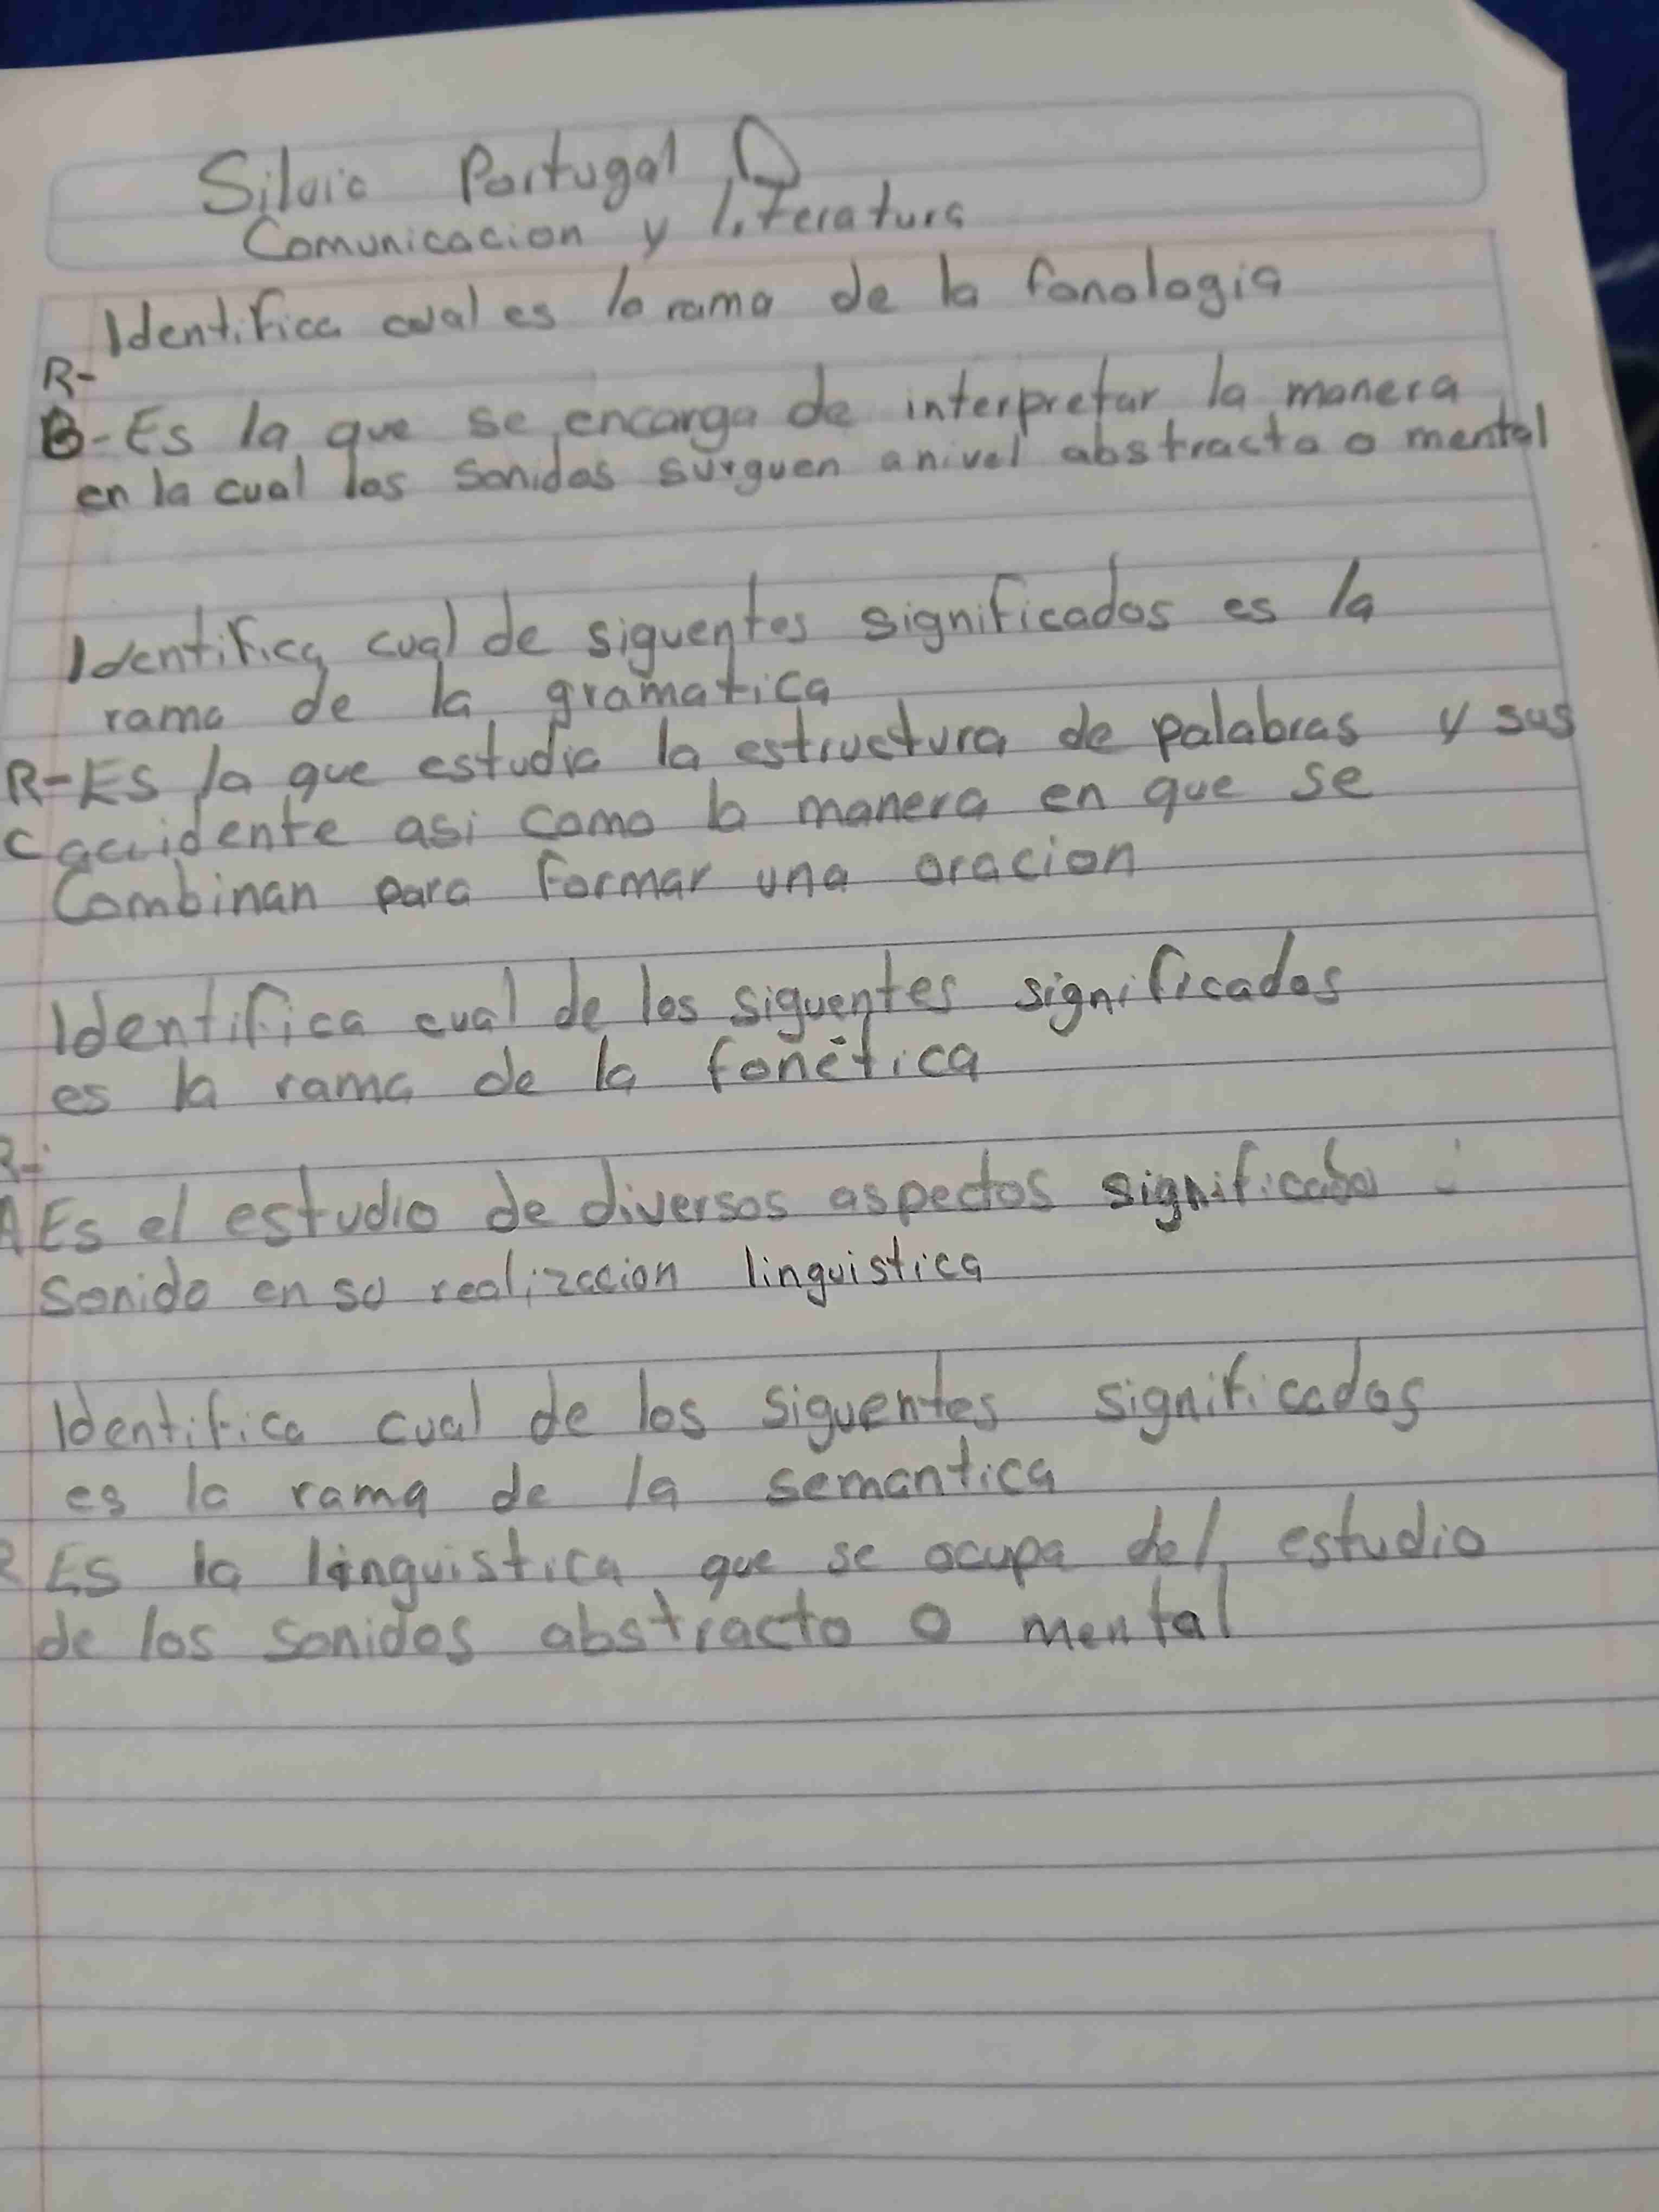 Silvia Portugal D
Comunicacion y literatura
Identifica cual es la rama de la fonologia
R-
B-Es la que se encarga de interpretar la manera
en la cual los sonidos surguen a nivel abstracto o mental
Identifica cual de siguentes significados es la
rama de la gramatica
R-Es la que estudia la estructura de palabras y sus
C accidente asi como la manera en que se
Combinan para formar una oracion
Identifica cual de los siguentes significados
es la rama de la fonética
R-
A Es el estudio de diversos aspectos significado
Sonido en su realizacion linguistica
Identifica cual de los siguentes significados
es la rama de la semantica
R Es la linguistica que se ocupa del estudio
de los sonidos abstracto o mental